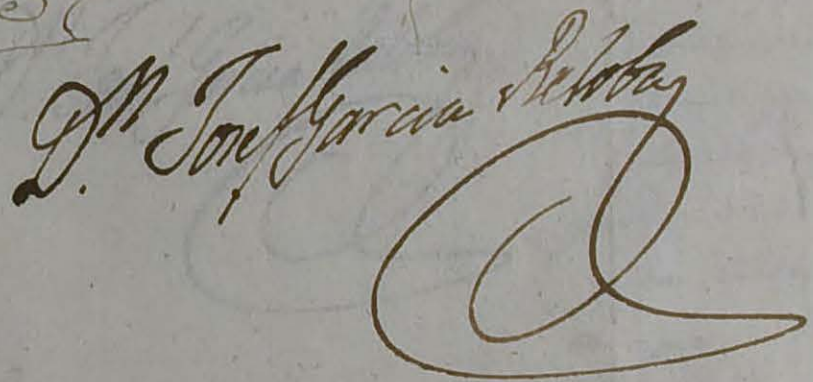 Dn. Josef Garcia Reloba